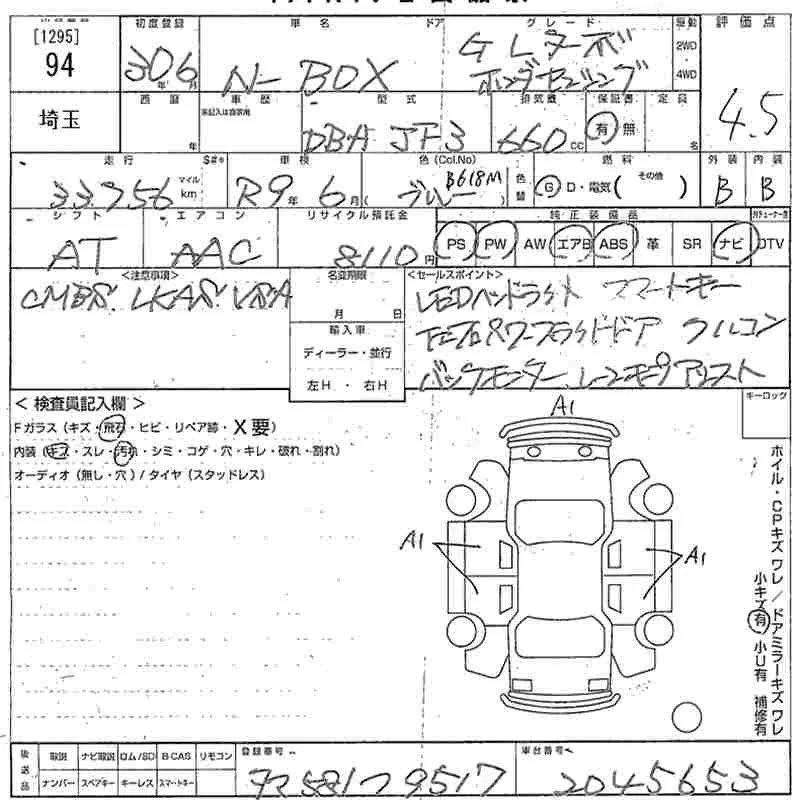 [1295]
94
初度登録
306
年 月
車名
N-BOX
ドア
グレード
GLターボ
ホンダセンシング
駆動
2WD
・
4WD
評価点
4.5
埼玉
西暦
年
車歴
未記入は自家用
型式
DBA JF3
排気量
660 cc
保証書
有・無
定員
名
走行
33,756
マイル
km
S#*
車検
R9年 6月
色(Col.No)
ブルー B618M
色替
燃料
G・D・電気( その他 )
外装
B
内装
B
シフト
AT
エアコン
AAC
リサイクル預託金
8110円
純正装備品
PS PW AW エアB ABS 革 SR ナビ DTV
<注意事項>
CMBS. LKAS. VSA
名変期限
月 日
輸入車
ディーラー・並行
左H ・ 右H
<セールスポイント>
LEDヘッドライト スマートキー
パワースライドドア フルコン
バックモニター
<検査員記入欄>
Fガラス(キズ・飛石・ヒビ・リペア跡・X要)
内装(キズ・スレ・汚れ・シミ・コゲ・穴・キレ・破れ・割れ)
オーディオ(無し・穴)/タイヤ(スタッドレス)
キーロック
A1
A1
A1
ホイル・CPキズ ワレ / ドアミラーキズ ワレ
小キズ有 小U有 補修有
後送品
取説 ナビ取説 ロム/SD B-CAS リモコン
ナンバー スペアキー キーレス スマートキー
登録番号
581 9517
車台番号
2045653